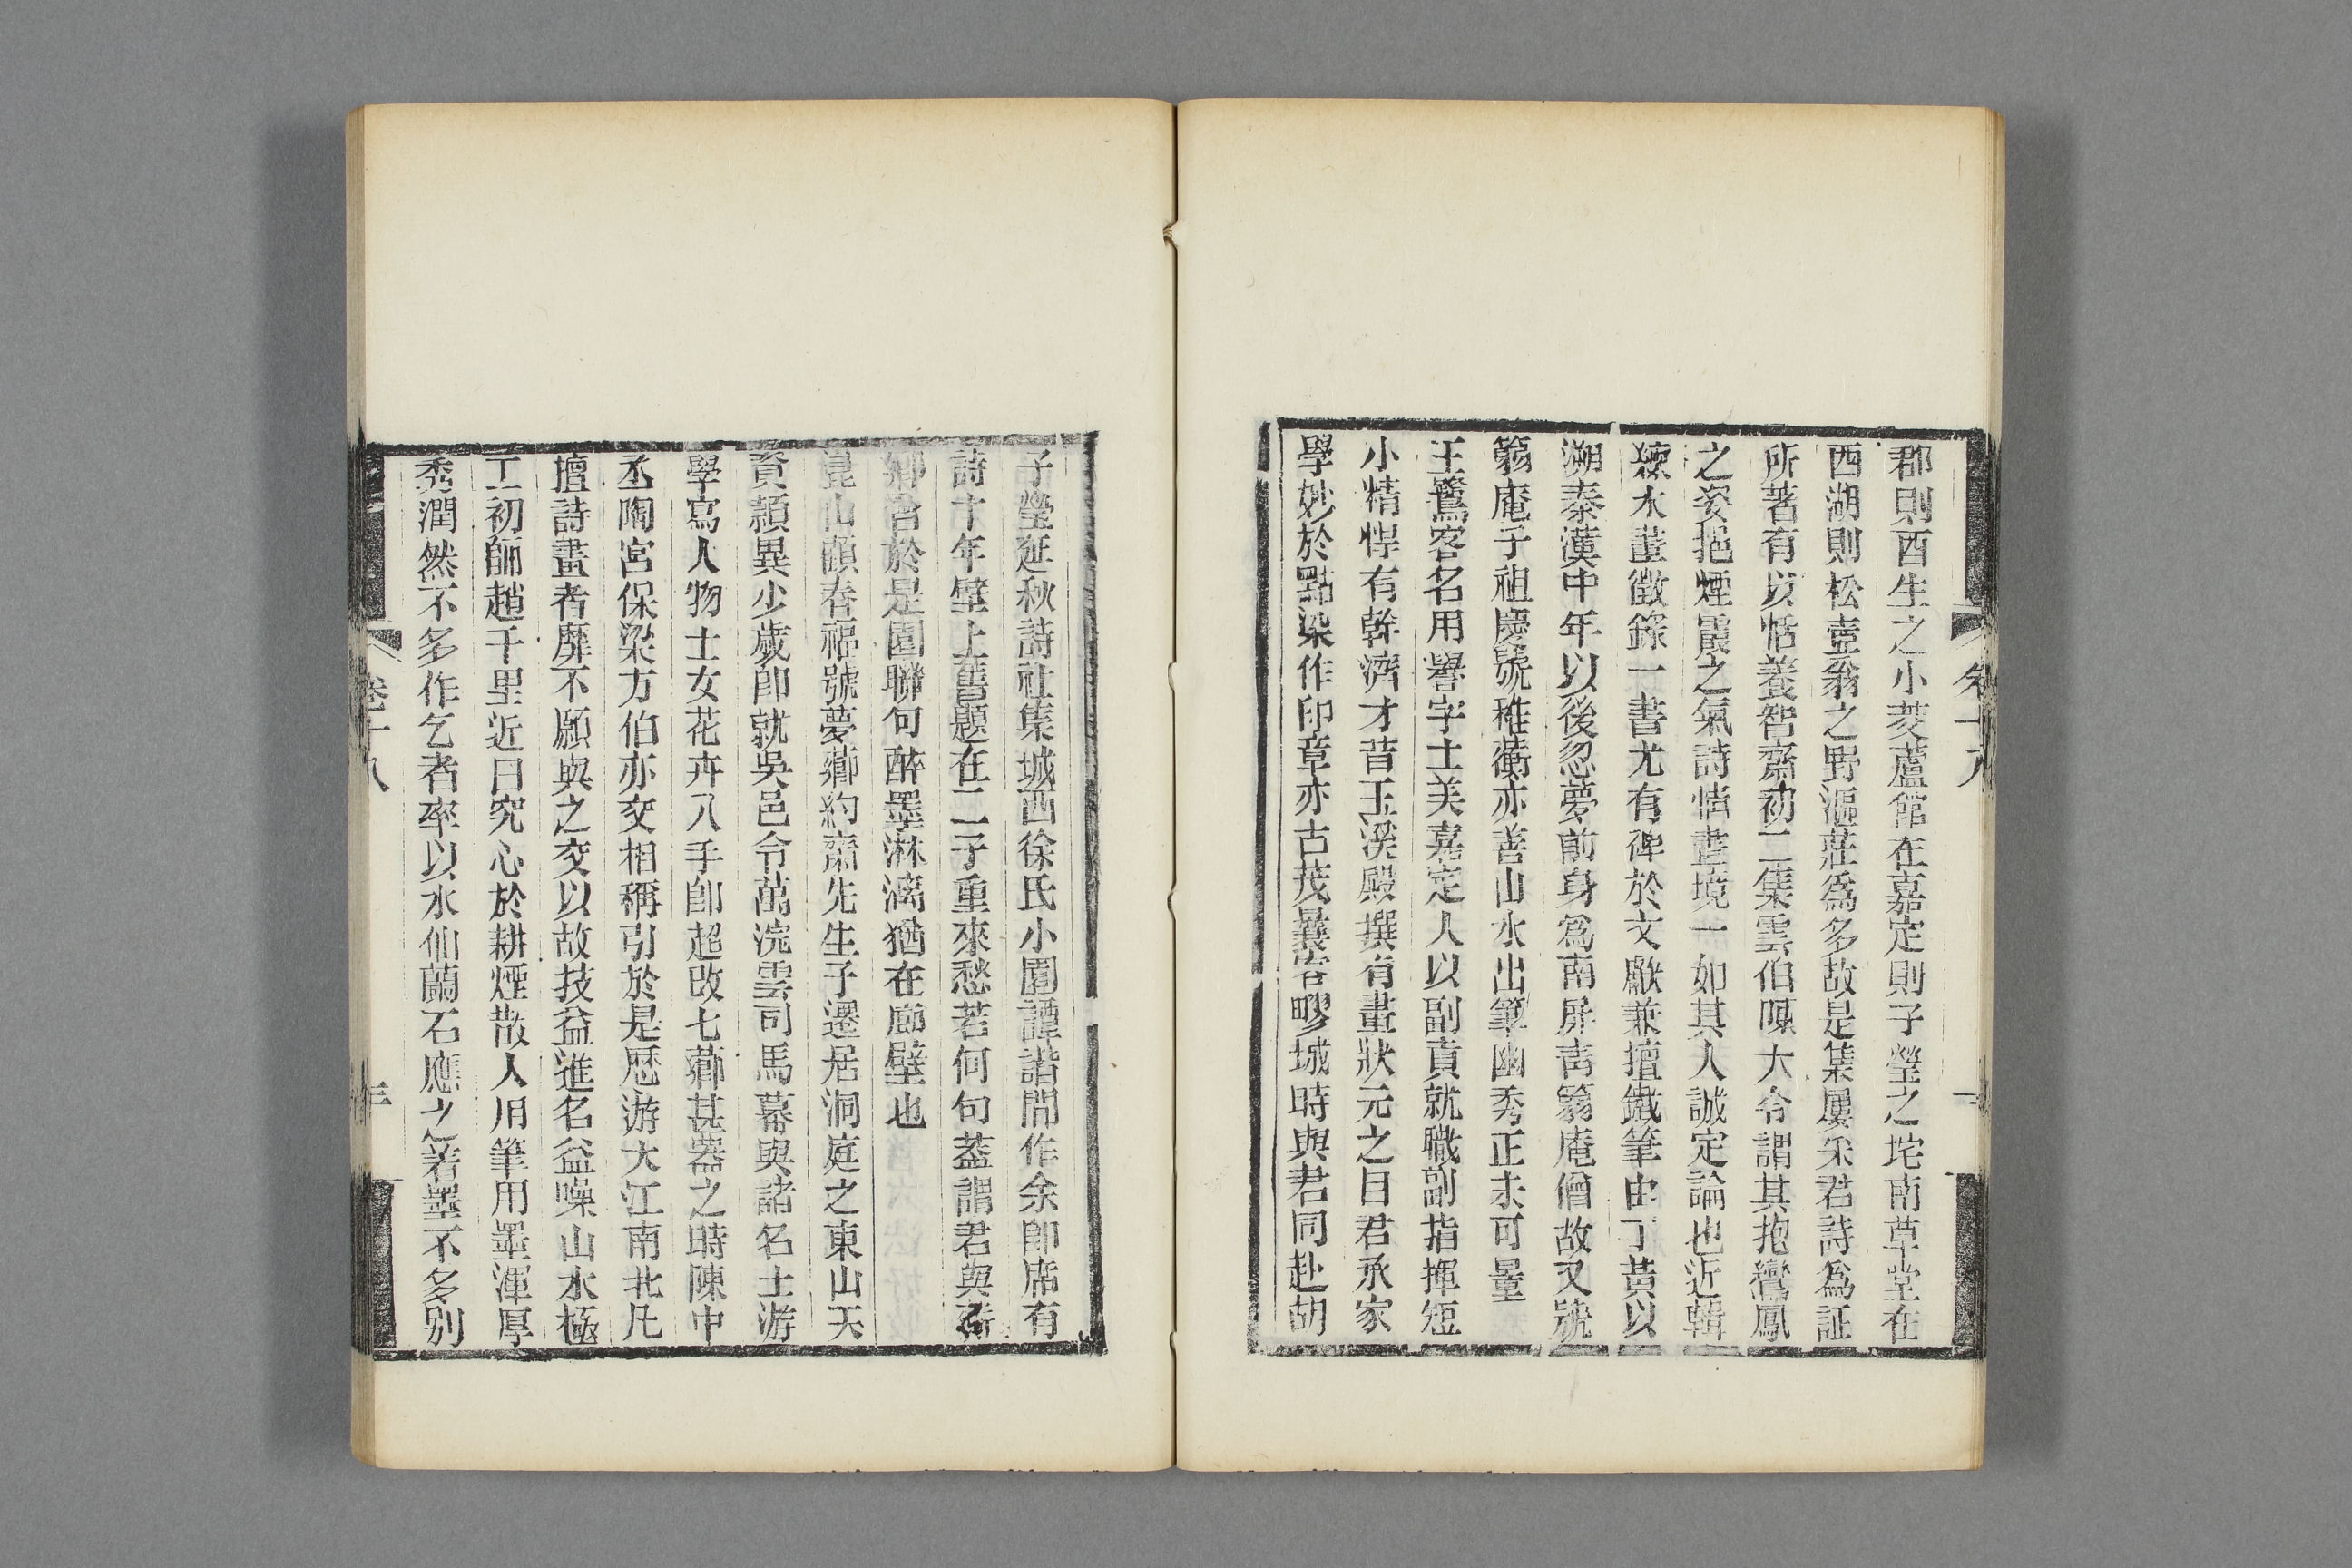 郡則酉生之小菱蘆館在嘉定則子瑩之垞南草堂在
西湖則松壺翁之野漚莊爲多故是集屢采君詩爲証
所著有以恬養智齋初二集雲伯陳大令謂其抱鸞鳳
之姿挹煙霞之氣詩情畫境一如其人誠定論也近輯
練水畫徵錄一書尤有裨於文獻兼擅鐵筆由丁黃以
溯秦漢中年以後忽夢前身爲南屏壽篛庵僧故又號
篛庵子祖慶號稚蘅亦善山水出筆幽秀正未可量
王鷺客名用譽字士美嘉定人以副貢就職副指揮短
小精悍有幹濟才昔玉溪殿撰有畫狀元之目君承家
學妙於點染作印章亦古茂曩客疁城時與君同赴胡
卷十八
子瑩延秋詩社集城西徐氏小園譚諧間作余卽席有
詩十年壁上舊題在二子重來愁若何句蓋謂君與春
鄉曾於是園聯句醉墨淋漓猶在廊壁也
崑山顧春福號夢薌約齋先生子遷居洞庭之東山天
資穎異少歲卽就吳邑令萬浣雲司馬幕與諸名士游
學寫人物士女花卉入手卽超改七薌甚器之時陳中
丞陶宮保梁方伯亦交相稱引於是歷游大江南北凡
擅詩畫者靡不願與之交以故技益進名益噪山水極
工初師趙千里近日究心於耕煙散人用筆用墨渾厚
秀潤然不多作乞者率以水仙蘭石應之着墨不多別
卷十八